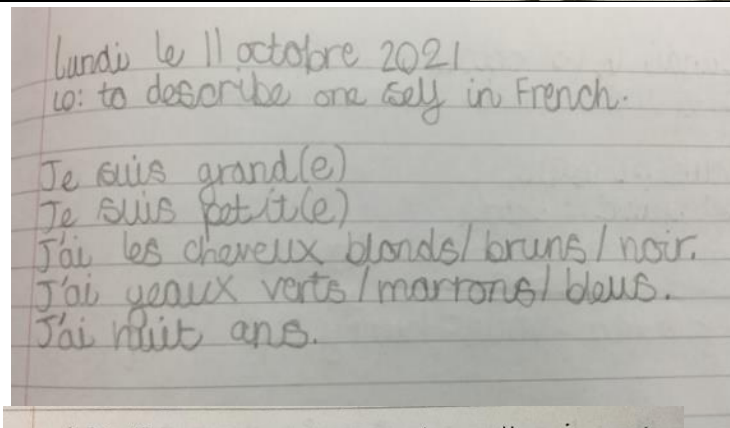 lundi le 11 octobre 2021
LO: to describe one self in French.
Je suis grand(e)
Je suis petit(e)
J'ai les cheveux blonds/bruns/noir.
J'ai yeaux verts/marrons/bleus.
J'ai huit ans.